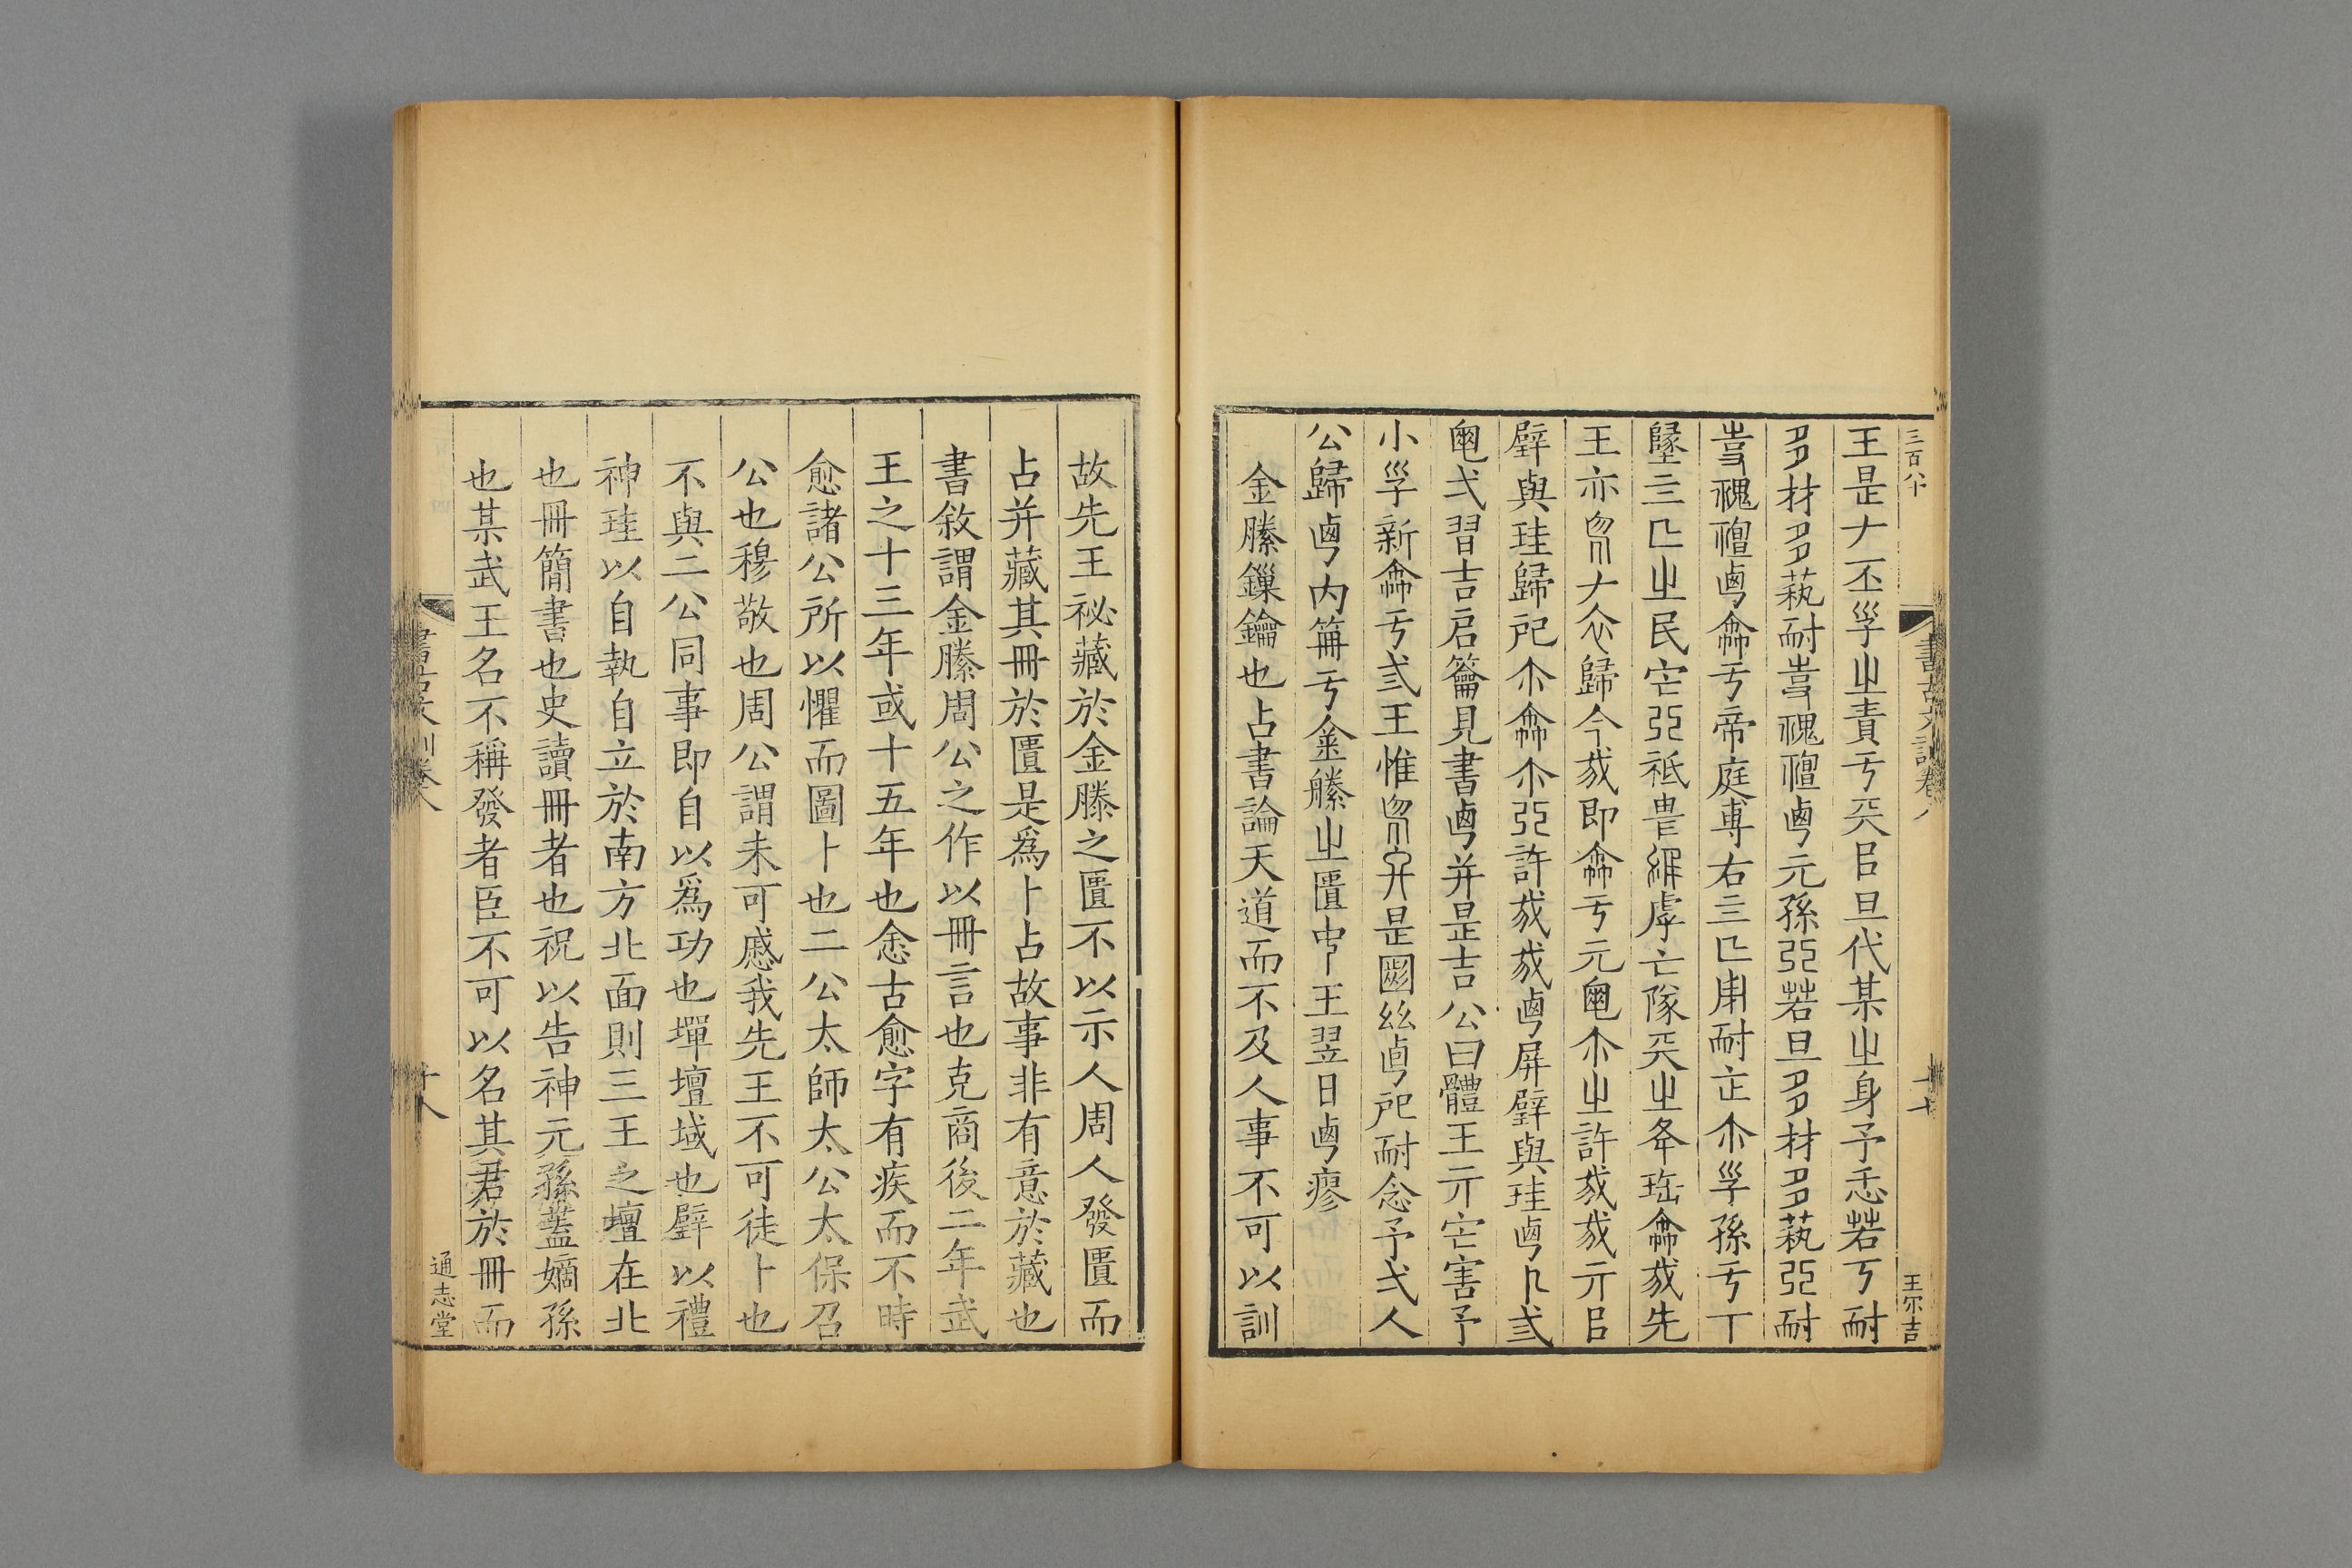 三百八十
書古文訓卷八
十七
王尔吉
王是𠂇丕孠㞢責亐兲㠯旦代某㞢身予忎若丂耐
多材多蓺耐𠭏䰠䄠𠧟元孫亞若旦多材多蓺亞耐
𠭏䰠䄠𠧟龠亐帝庭尃右亖匚𤰆耐㱏尒孠孫亐丅
墬亖匚㞢民宅亞祗畏虖亡隊兲㞢夅珤龠𢦓先
王亦𠂇㐺歸今𢦓即龠亐元龜尒㞢許𢦓𢦓亓㠯
璧與珪歸祀尒龠尒亞許𢦓𢦓𠧟屏璧與珪𠧟卜弎
龜弌習吉启籥見書𠧟并是吉公曰體王亓宅害予
小孠新龠亐弎王惟是圖祀耐念予弌人
公歸𠧟内𠕋亐金縢㞢匱中王翌日𠧟瘳
金縢鏁鑰也占書論天道而不及人事不可以訓
故先王祕藏於金縢之匱不以示人周人發匱而
占并藏其冊於匱是爲卜占故事非有意於藏也
書敘謂金縢周公之作以冊言也克商後二年武
王之十三年或十五年也悆古愈字有疾而不時
愈諸公所以懼而圖卜也二公太師太公太保召
公也穆敬也周公謂未可慼我先王不可徒卜也
不與二公同事即自以爲功也墠壇域也璧以禮
神珪以自執自立於南方北面則三王之壇在北
也冊簡書也史讀冊者也祝以告神元孫蓋嫡孫
也某武王名不稱發者臣不可以名其君於冊而
書古文訓卷八
十八
通志堂